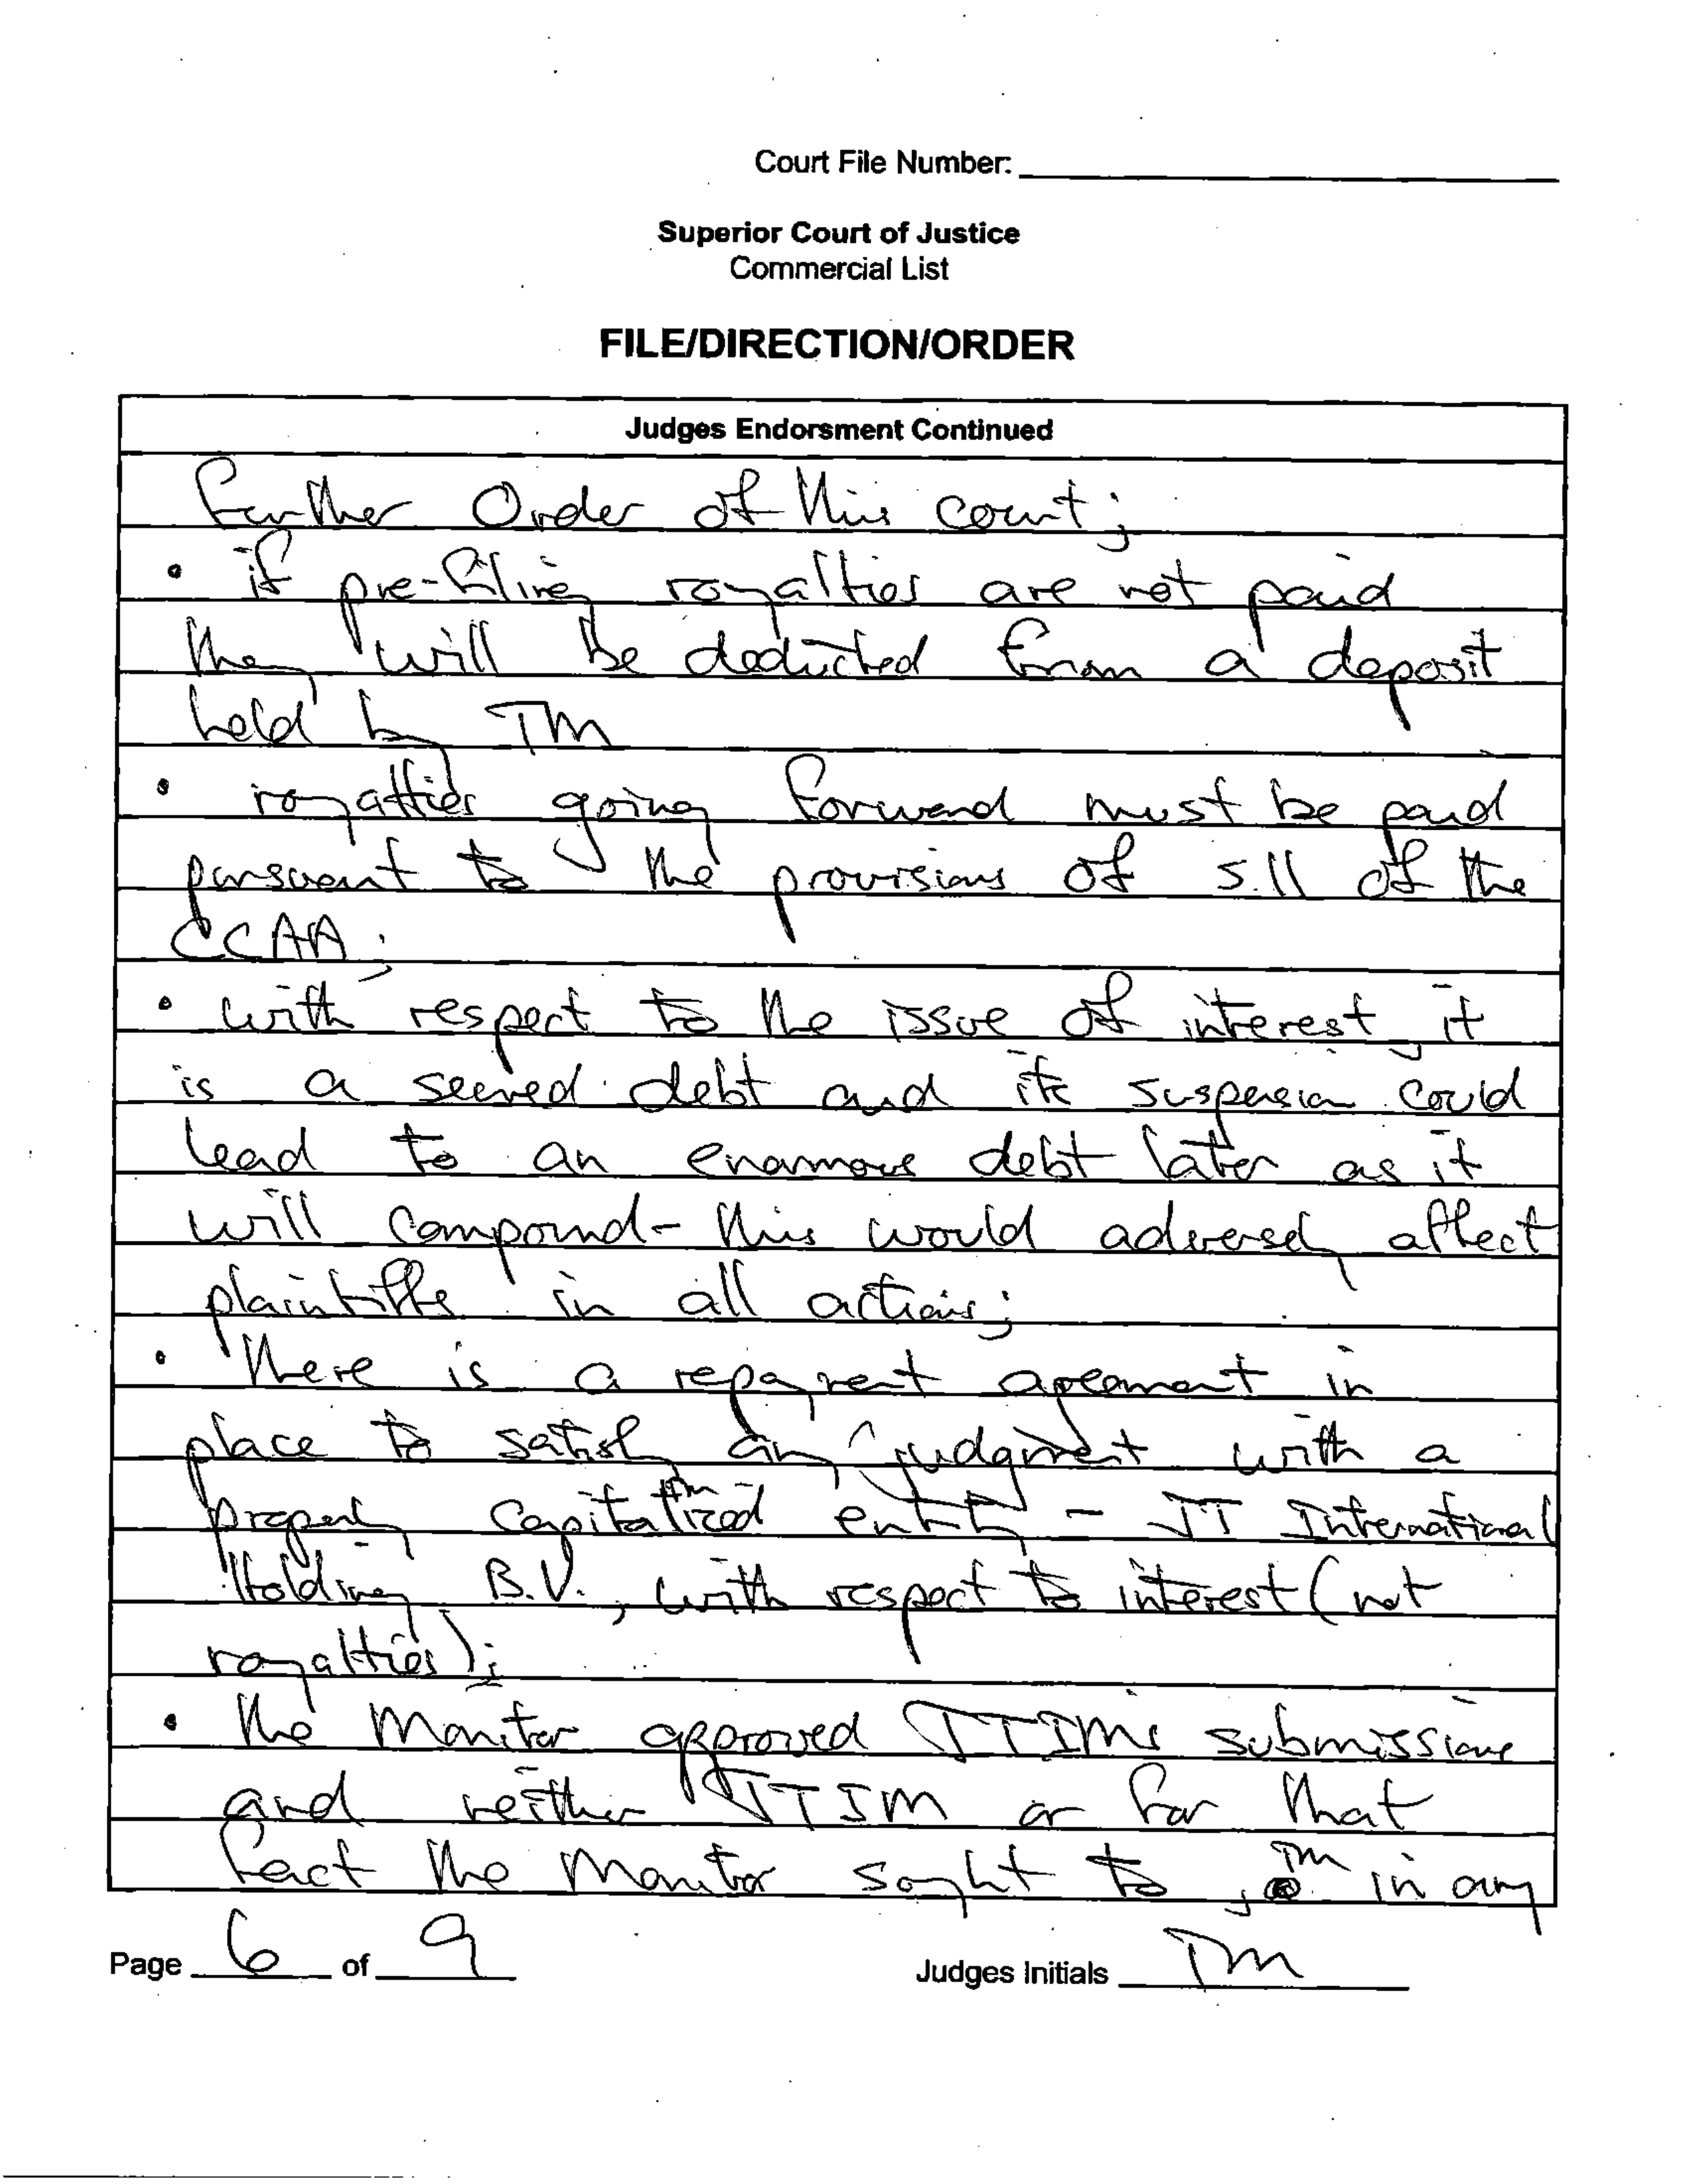 Court File Number:
Superior Court of Justice
Commercial List
FILE/DIRECTION/ORDER
Judges Endorsment Continued
further Order of this court;
• if pre-filing royalties are not paid
they will be deducted from a deposit
held by TM
• royalties going forward must be paid
pursuant to the provisions of s.11 of the
CCAA;
• with respect to the issue of interest it
is a secured debt and its suspension could
lead to an enormous debt later as it
will compound - this would adversely affect
plaintiffs in all actions;
• there is a repayment agreement in
place to satisfy any judgment with a
properly capitalized entity - JT International
Holding B.V., with respect to interest (not
royalties);
• the Monitor approved JTIMs submissions
and neither JTIM or for that
fact the Monitor sought to in any
Page 6 of 9
Judges Initials TM